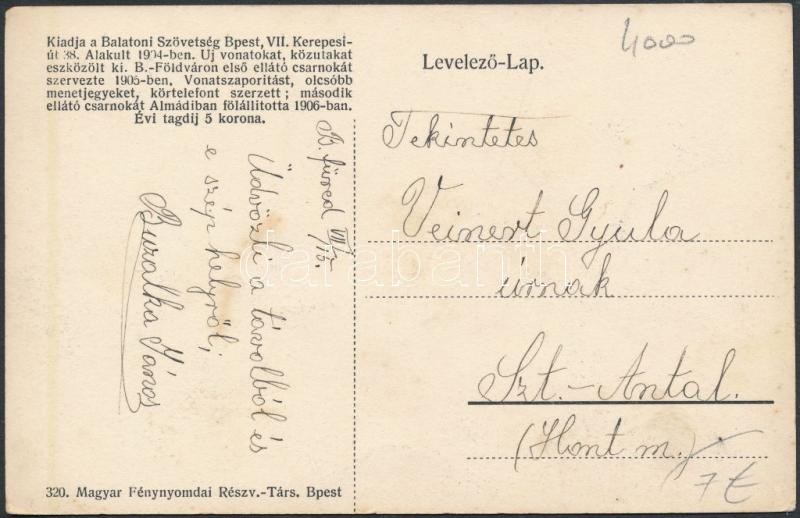 Kiadja a Balatoni Szövetség Bpest, VII. Kerepesi-
út 38. Alakult 1904-ben. Uj vonatokat, közutakat
eszközölt ki. B.-Földváron első ellátó csarnokát
szervezte 1905-ben. Vonatszaporitást, olcsóbb
menetjegyeket, körtelefont szerzett; második
ellátó csarnokát Almádiban fölállitotta 1906-ban.
Évi tagdij 5 korona.
B. füred VII/15.
Üdvözli a távolból és
e szép helyről;
Buralka János
320. Magyar Fénynyomdai Részv.-Társ. Bpest
4000
Levelező-Lap.
Tekintetes
Veinert Gyula
úrnak
Szt.-Antal.
(Hont m.)
7 €
darabanth